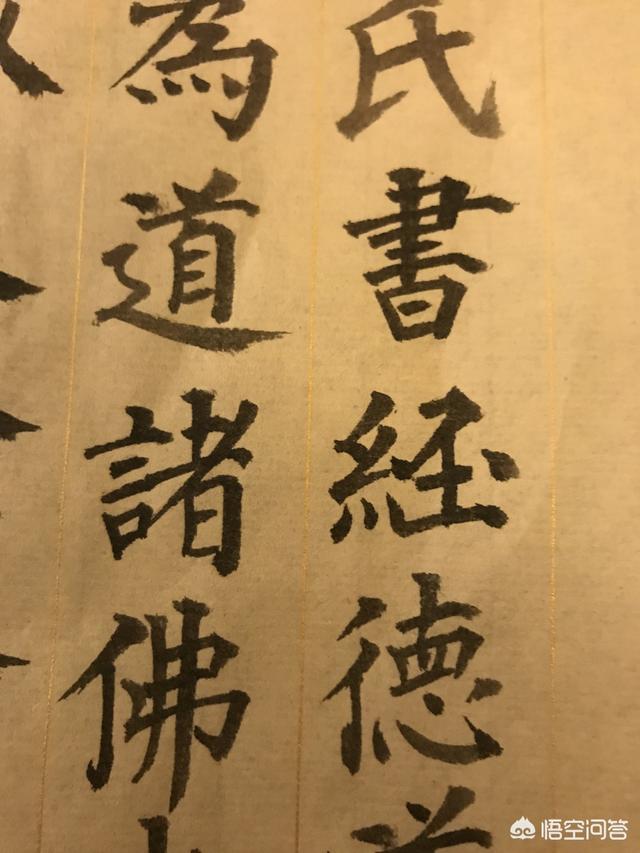 氏書經德
為道諸佛
悟空问答